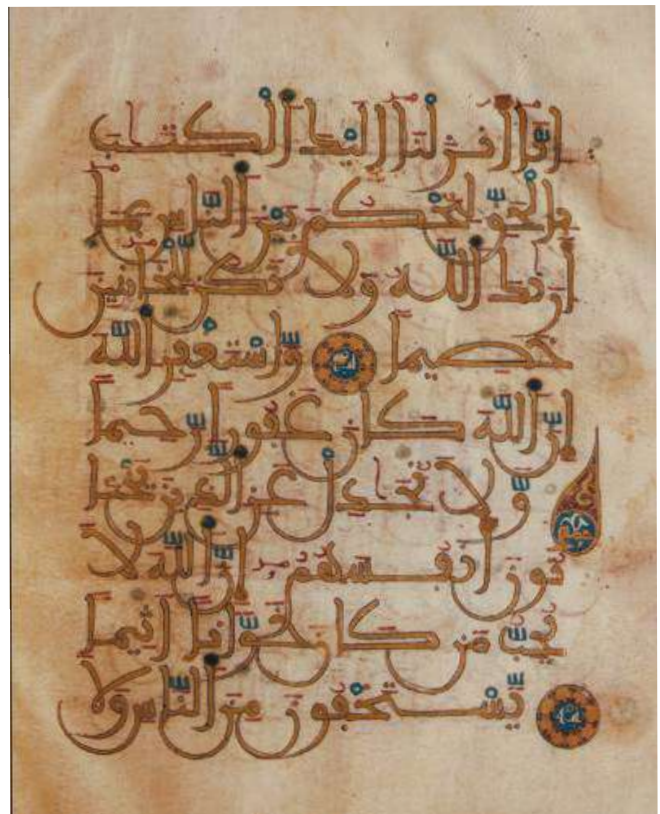 إنّا أنزلنا إليك الكتب
بالحقّ لتحكم بين النّاس بما
أريك اللّه ولا تكن للخائنين
خصيما واستغفر اللّه
إنّ اللّه كان غفورا رّحيما
ولا تجدل عن الذين يختا
نون أنفسهم إنّ اللّه لا
يحبّ من كان خوّانا أثيما
يستخفون من النّاس ولا